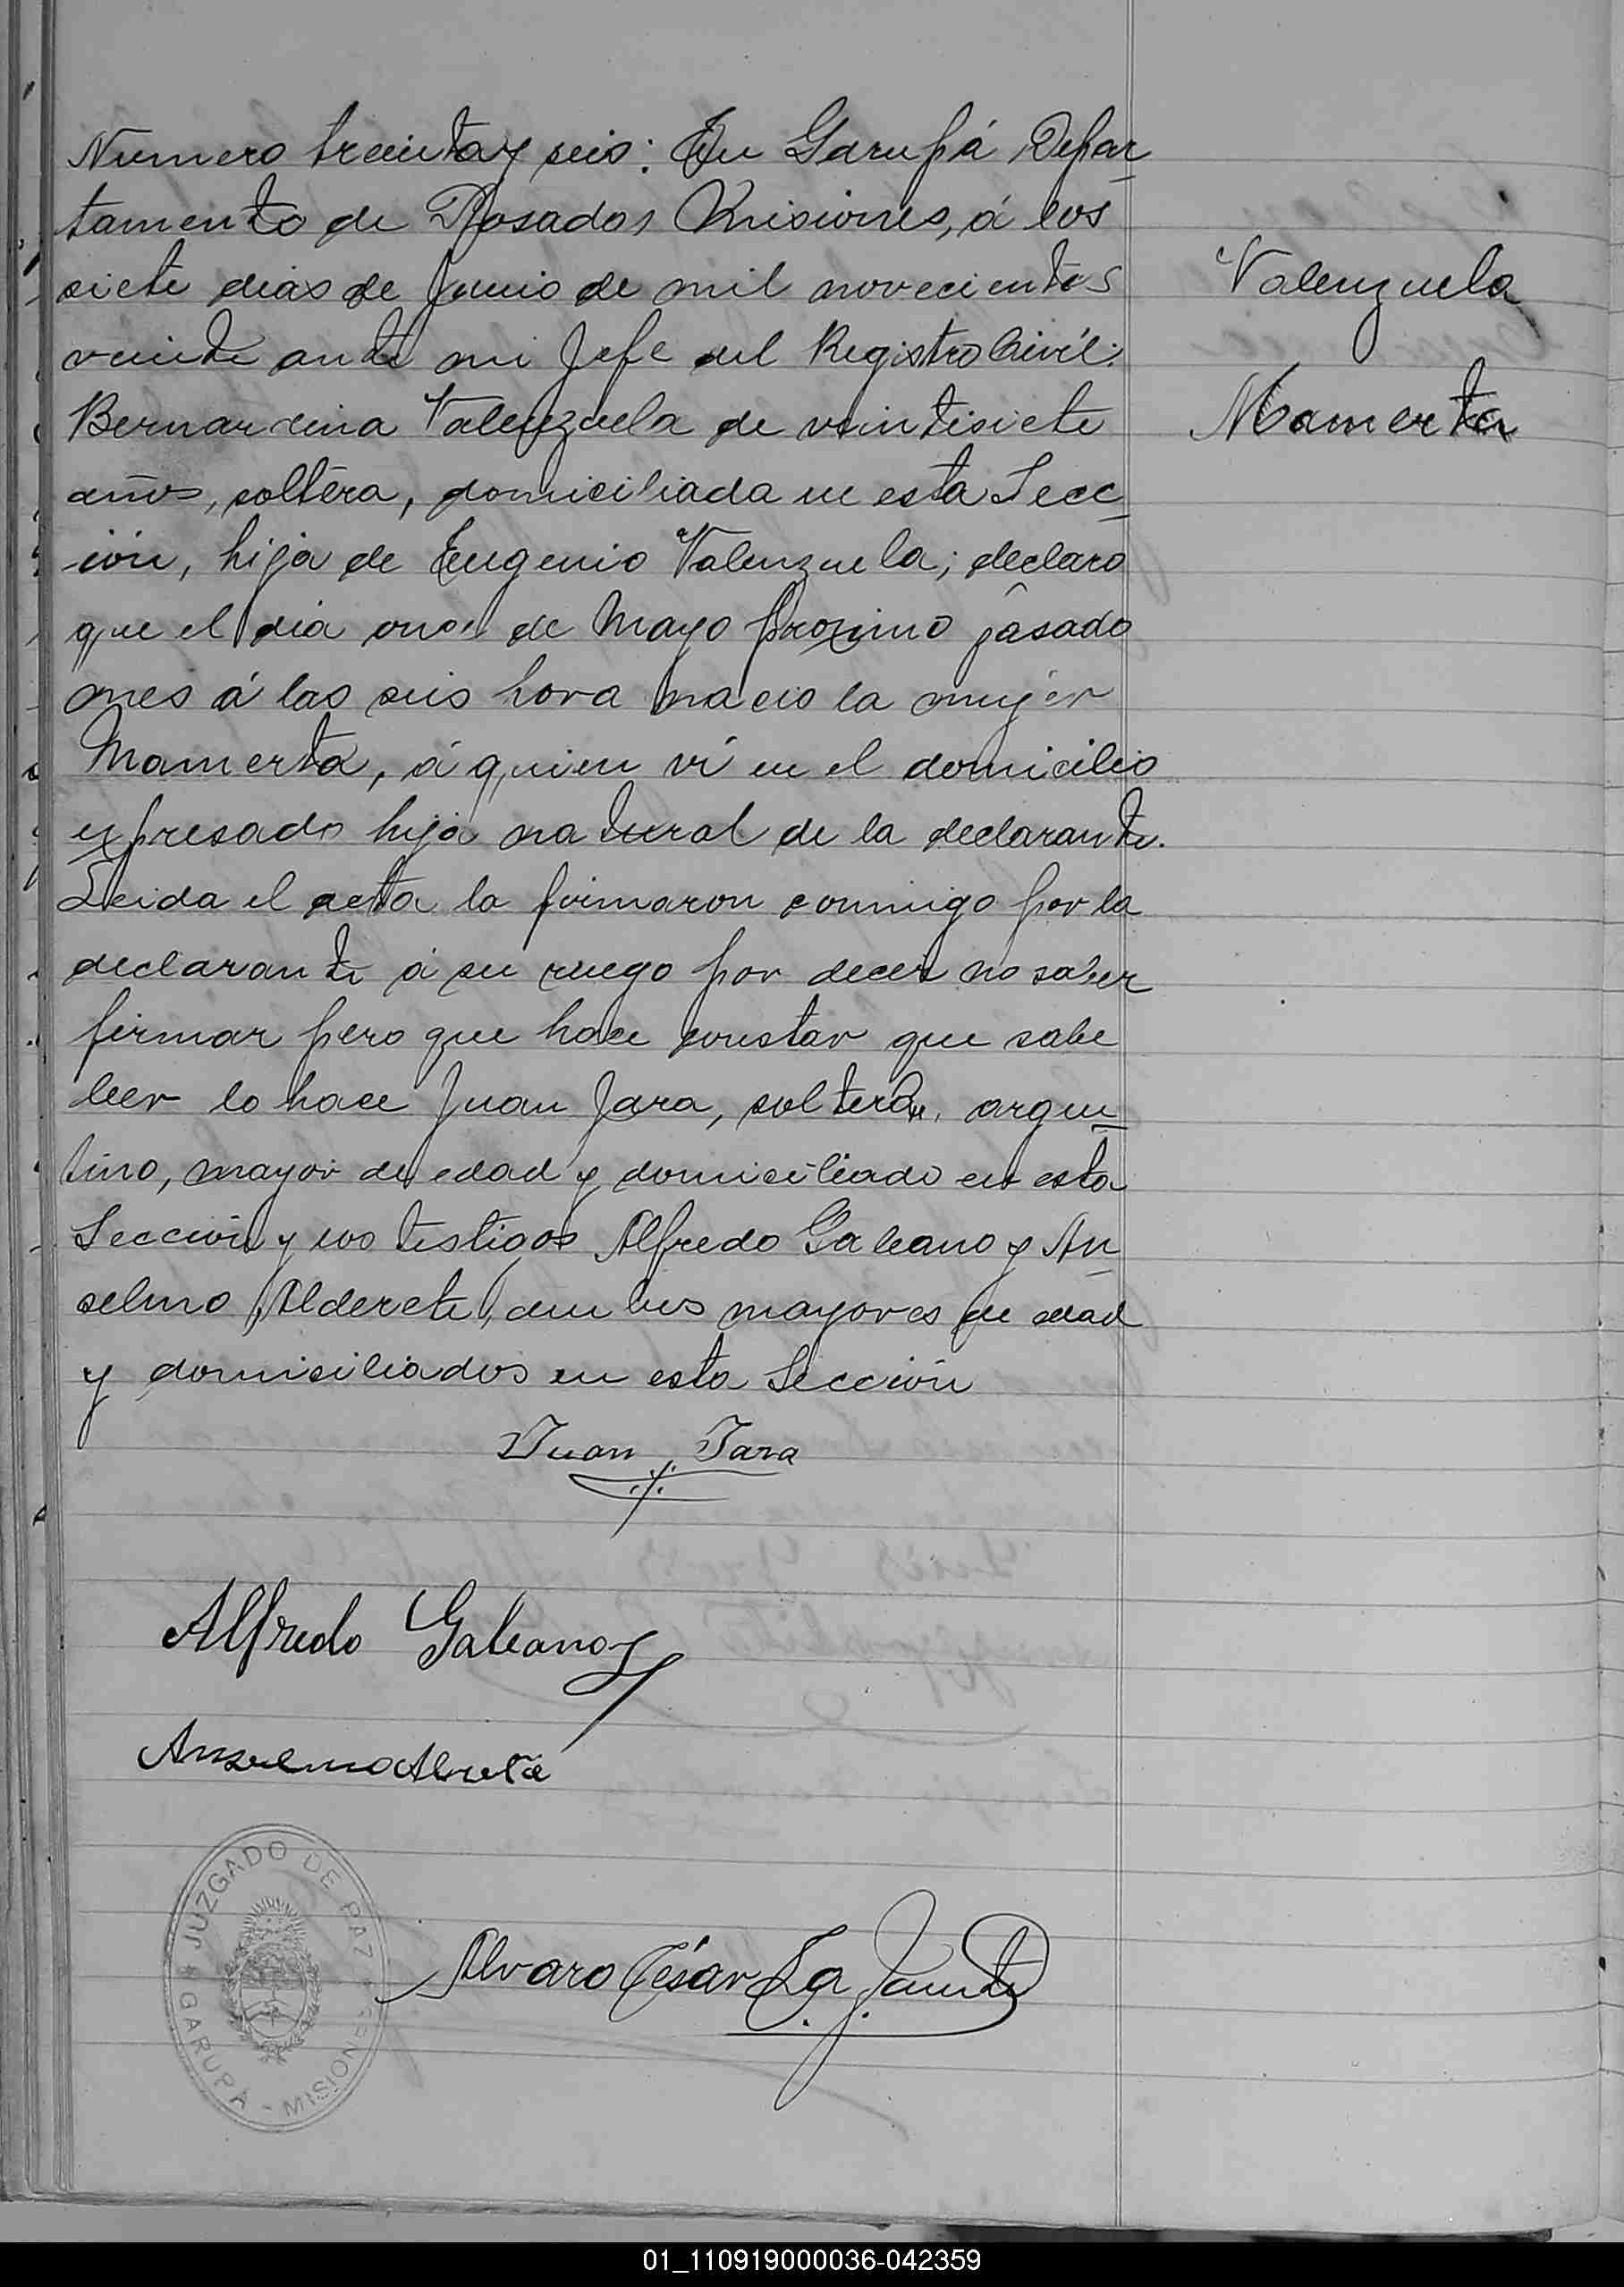 Numero treinta y seis: En Garupá Depar-
tamento de Posadas Misiones, á los
siete dias de Junio de mil novecientos
veinte ante mi Jefe del Registro Civil:
Bernardina Valenzuela de veintisiete
años, soltera, domiciliada en esta Secc-
ión, hija de Eugenio Valenzuela; declaro
que el dia once de Mayo proximo pasado
mes á las seis hora nacio la mujer
Mamerta, á quien ví en el domicilio
expresado hija natural de la declarante.
Leida el acta la firmaron conmigo por la
declarante á su ruego por decir no saber
firmar pero que hace constar que sabe
leer lo hace Juan Jara, argen-
tino, mayor de edad y domiciliado en esta
Sección y los testigos Alfredo Galeano y An-
selmo Alderete, ambos mayores de edad
y domisiliados en esta Sección
Valenzuela
Mamerta
Juan Jara
Alfredo Galeano
Anselmo
JUZGADO DE PAZ
GARUPÁ - MISIONES
Alvaro César
01_110919000036-042359